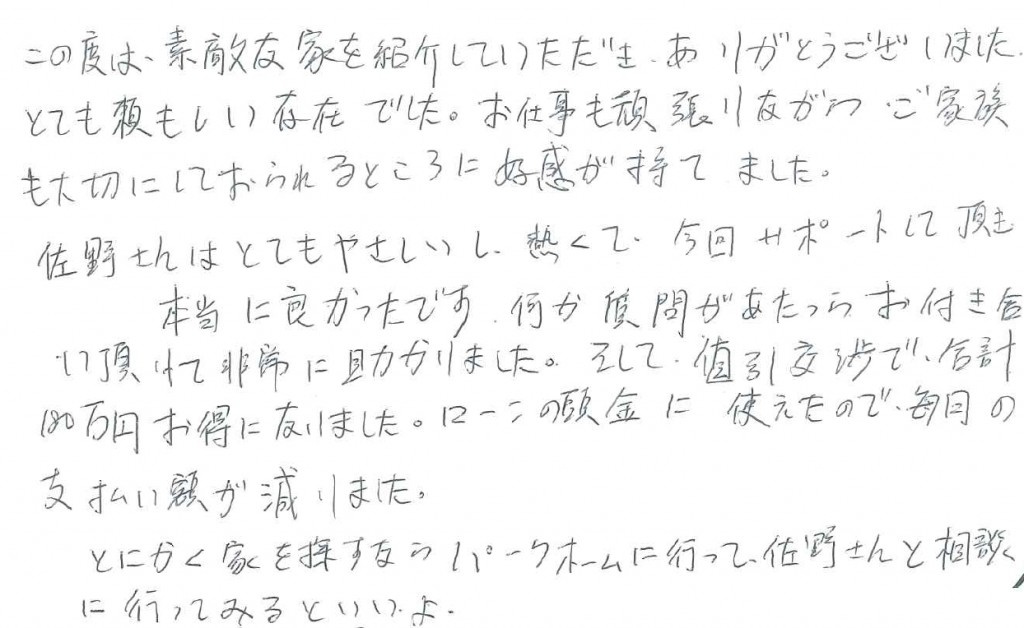 この度は、素敵な家を紹介していただき、ありがとうございました。
とても頼もしい存在でした。お仕事も頑張りながら、ご家族
も大切にしておられるところに好感が持てました。
佐野さんはとてもやさしいし、熱くて、今回サポートして頂き
本当に良かったです。何か質問があたっらお付き合
い頂けて非常に助かりました。そして、値引交渉で、合計
180万円お得になりました。ローンの頭金に使えたので、毎日の
支払い額が減りました。
とにかく家を探すならパークホームに行って、佐野さんと相談
に行ってみるといいよ。